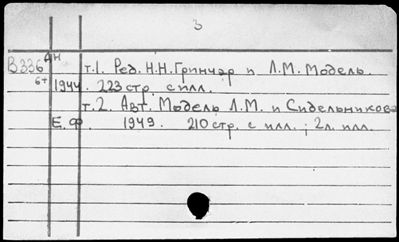 3
В336 АН т.1. Ред. Н.Н. Гринчар и Л.М. Модель.
6+ 1944. 223 стр. с илл.
т.2. Авт. Модель Л.М. и Сидельникова
Е.Ф. 1949. 210 стр. с илл.; 2 л. илл.